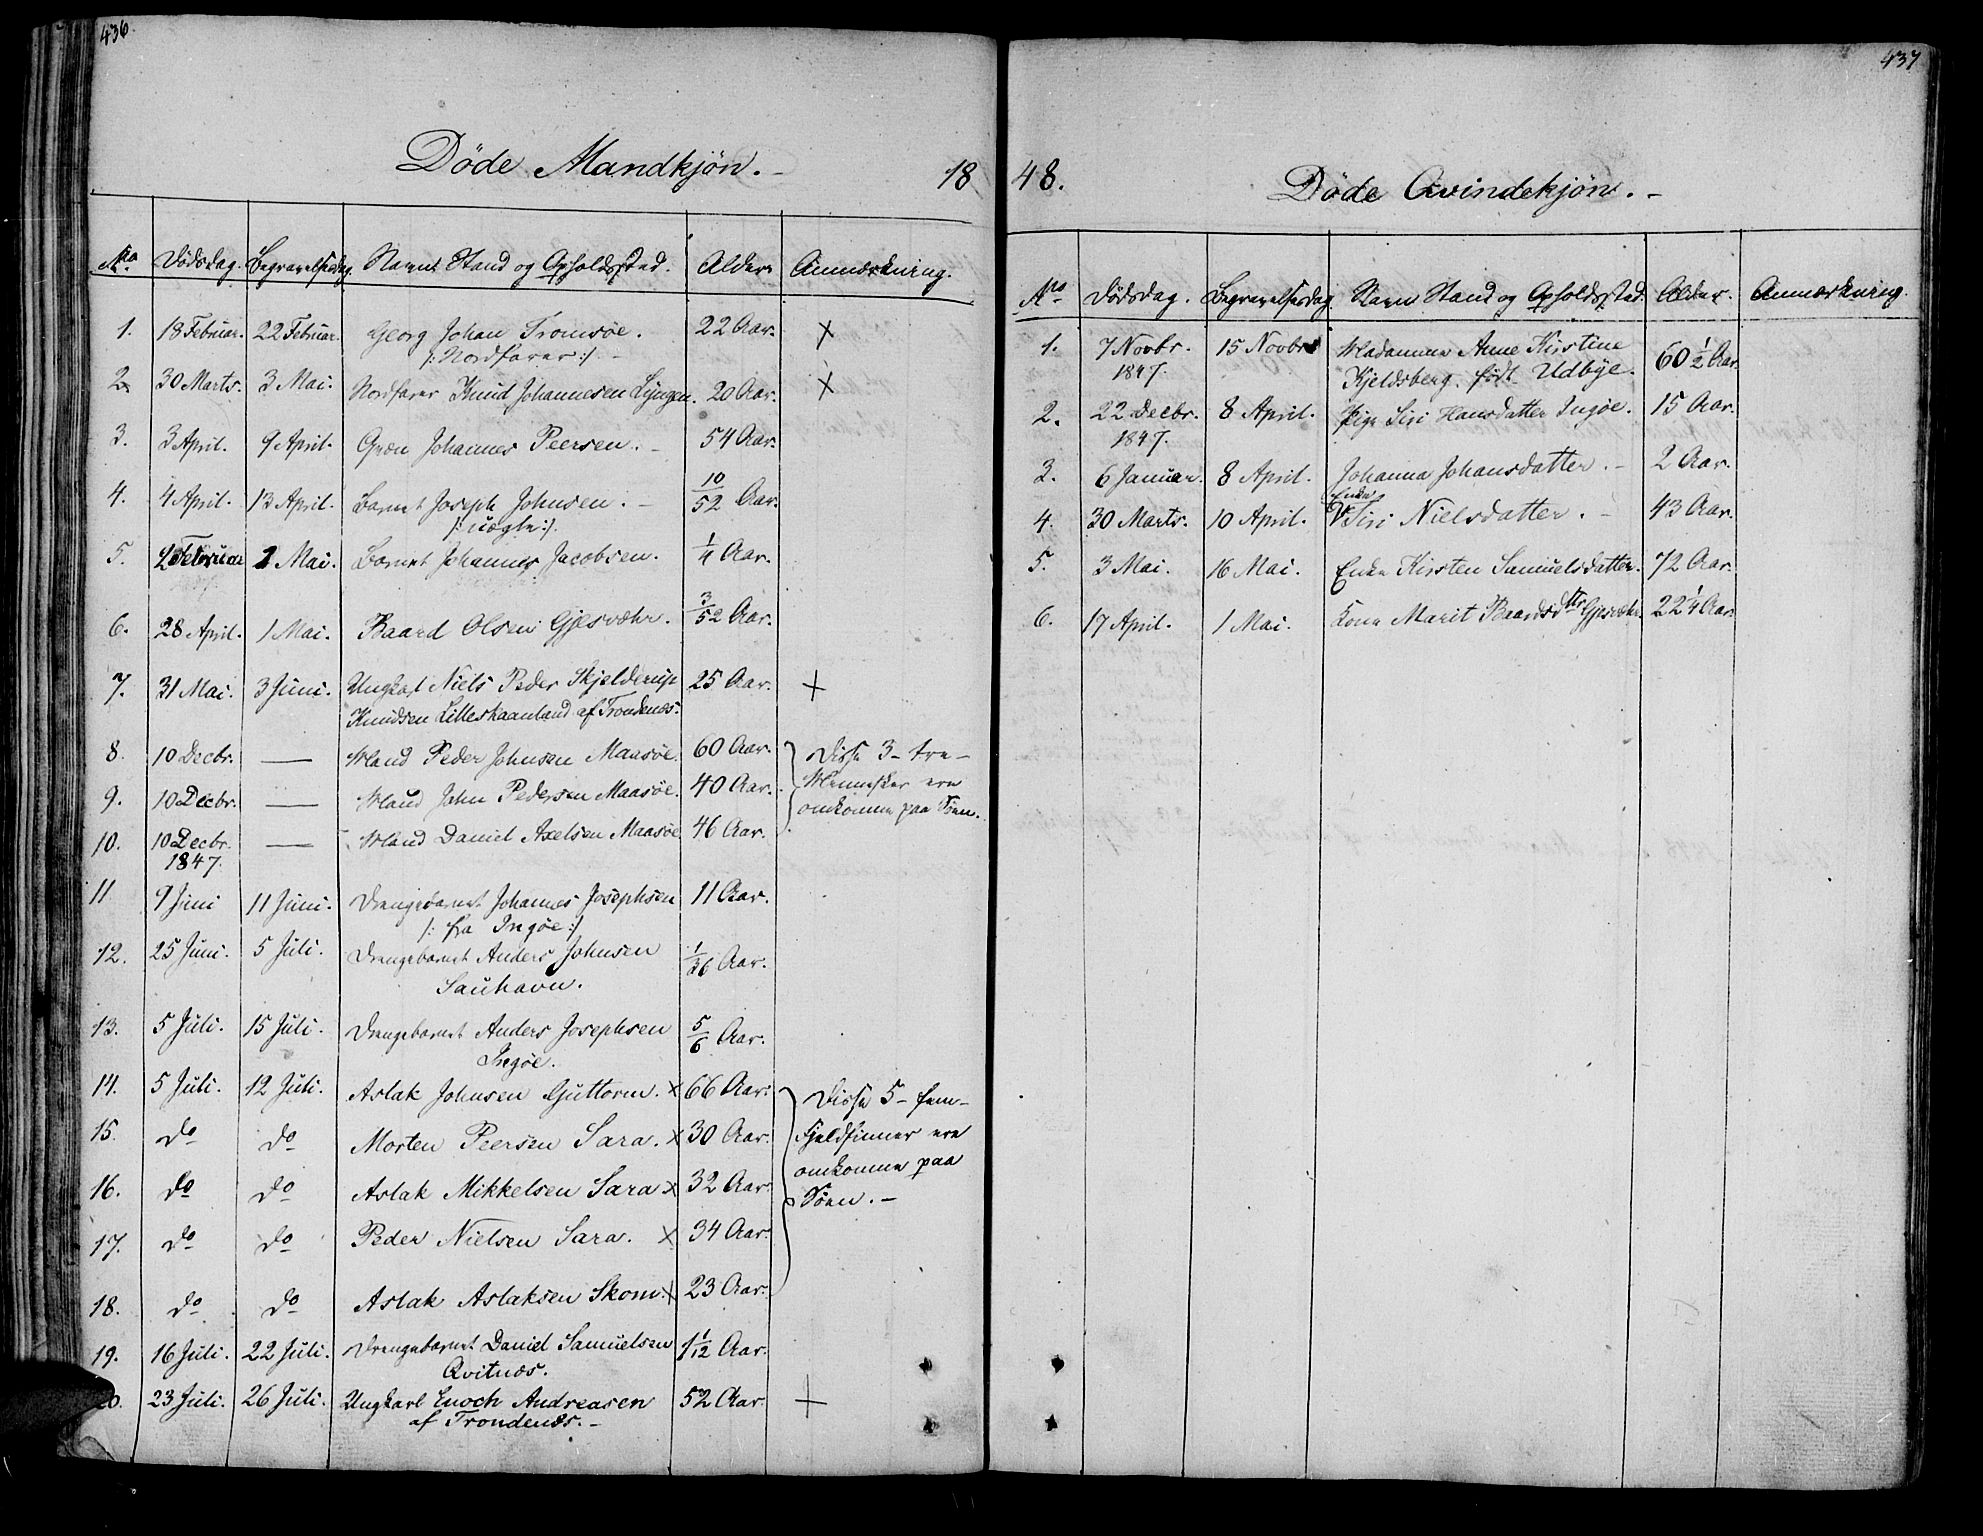 436
Döde Mandkjön. 18
No Dödsdag. Begravelsesdag. Navn Stand og Opholdssted. Alder Anmærkning.
1. 18 Februar. 22 Februar. Georg Johan Tromsøe. 22 Aar. X
/: Nordfarer :/
2. 30 Marts. 3 Mai. Nordfarer Knud Johannesen Lyngen. 20 Aar. X
3. 3 April. 9 April. Johannes Peersen. 54 Aar.
4. 4 April. 13 April. Barnet Joseph Johnsen. 10/52 Aar.
/: uægte :/.
5. 2 Februar 1 Mai. Barnet Johannes Jacobsen. 1/4 Aar.
6. 28 April. 1 Mai. Baard Olsen Gjesvæhr. 3/52 Aar.
7. 31 Mai. 3 Juni. Ungkarl Niels Peder Skjelderup 25 Aar. +
Knudsen Lilleskaanland af Trondenæs.
8. 10 Decbr. — Mand Peder Johnsen Maasøe. 60 Aar. Disse 3 - tre -
9. 10 Decbr. — Mand John Pedersen Maasøe. 40 Aar. Mennesker ere
omkomne paa Søen.
10. 10 Decbr. — Mand Daniel Axelsen Maasøe 46 Aar.
1847.
11 9 Juni 11 Juni. Drengebarnet Johannes Josephsen 11 Aar.
/: fra Ingøe :/
12. 25 Juni. 5 Juli. Drengebarnet Anders Johnsen 1/36 Aar.
Sauhavn.
13. 5 Juli. 15 Juli. Drengebarnet Anders Josephsen 5/6 Aar.
Ingøe.
14. 5 Juli. 12 Juli. Aslak Johnsen Guttorm. X 66 Aar. Disse 5 - fem -
15. do do Morten Peersen Sara. X 30 Aar. Fjeldfinner ere
omkomne paa
16. do do Aslak Mikkelsen Sara X 32 Aar. Søen. -
17. do do Peder Nielsen Sara. X 34 Aar.
18. do do Aslak Aslaksen Skom. X 23 Aar.
19. 16 Juli. 22 Juli. Drengebarnet Daniel Samuelsen 1 1/12 Aar.
Qvitnæs.
20. 23 Juli. 26 Juli. Ungkarl Enoch Andreasen 52 Aar. +
af Trondenæs. -
437
48. Döde Qvindekjön. -
No Dödsdag. Begravelsesdag Navn Stand og Opholdssted. Alder. Anmærkning.
1. 7 Novbr. 15 Novbr Madamme Anne Kirstine 60 1/2 Aar.
1847. Kjeldsberg. født Udbye.
2. 22 Decbr. 8 April. Pige Siri Hansdatter Ingøe. 15 Aar.
1847.
3. 6 Januar. 8 April. Johanna Johansdatter. - 2 Aar.
4. 30 Marts. 10 April. Enke Siri Nielsdatter. - 43 Aar.
5. 3 Mai. 16 Mai. Enke Kirsten Samuelsdatter. 72 Aar.
6. 17 April. 1 Mai. Kone Marit Baardsdtr Gjesvæhr. 22 1/4 Aar